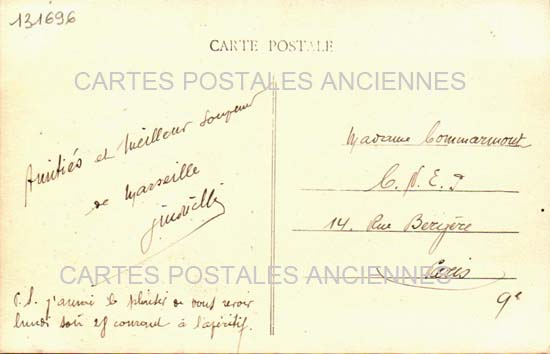 131696
CARTE POSTALE
CARTES POSTALES ANCIENNES
Amitiés et meilleur souvenir
de Marseille
Madame Commarmont
C. N. E. P
14. Rue Bergère
Paris
9e
CARTES POSTALES ANCIENNES
P.S. j'aurai le plaisir de vous revoir
lundi soir 28 courant à l'apéritif.